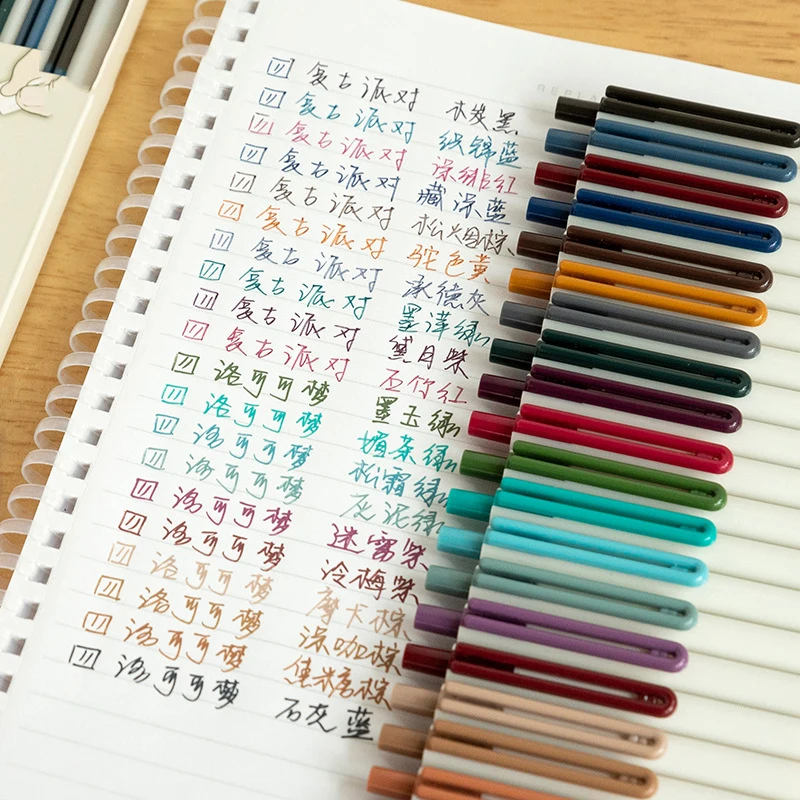 REPLA
复古派对 木炭黑.
复古派对 织锦蓝
复古派对 深绯红
复古派对 藏深蓝
复古派对 松烟棕
复古派对 驼色黄
复古派对
复古派对
复古派对 黛月紫
复古派对 石竹红
洛可可梦 墨玉绿
洛可可梦 媚茶绿
洛可可梦 松霜绿
洛可可梦 灰泥绿
洛可可梦 迷雾紫
洛可可梦 冷梅紫
洛可可梦 摩卡棕
洛可可梦 深咖棕
洛可可梦 焦糖棕
洛可可梦 石灰蓝